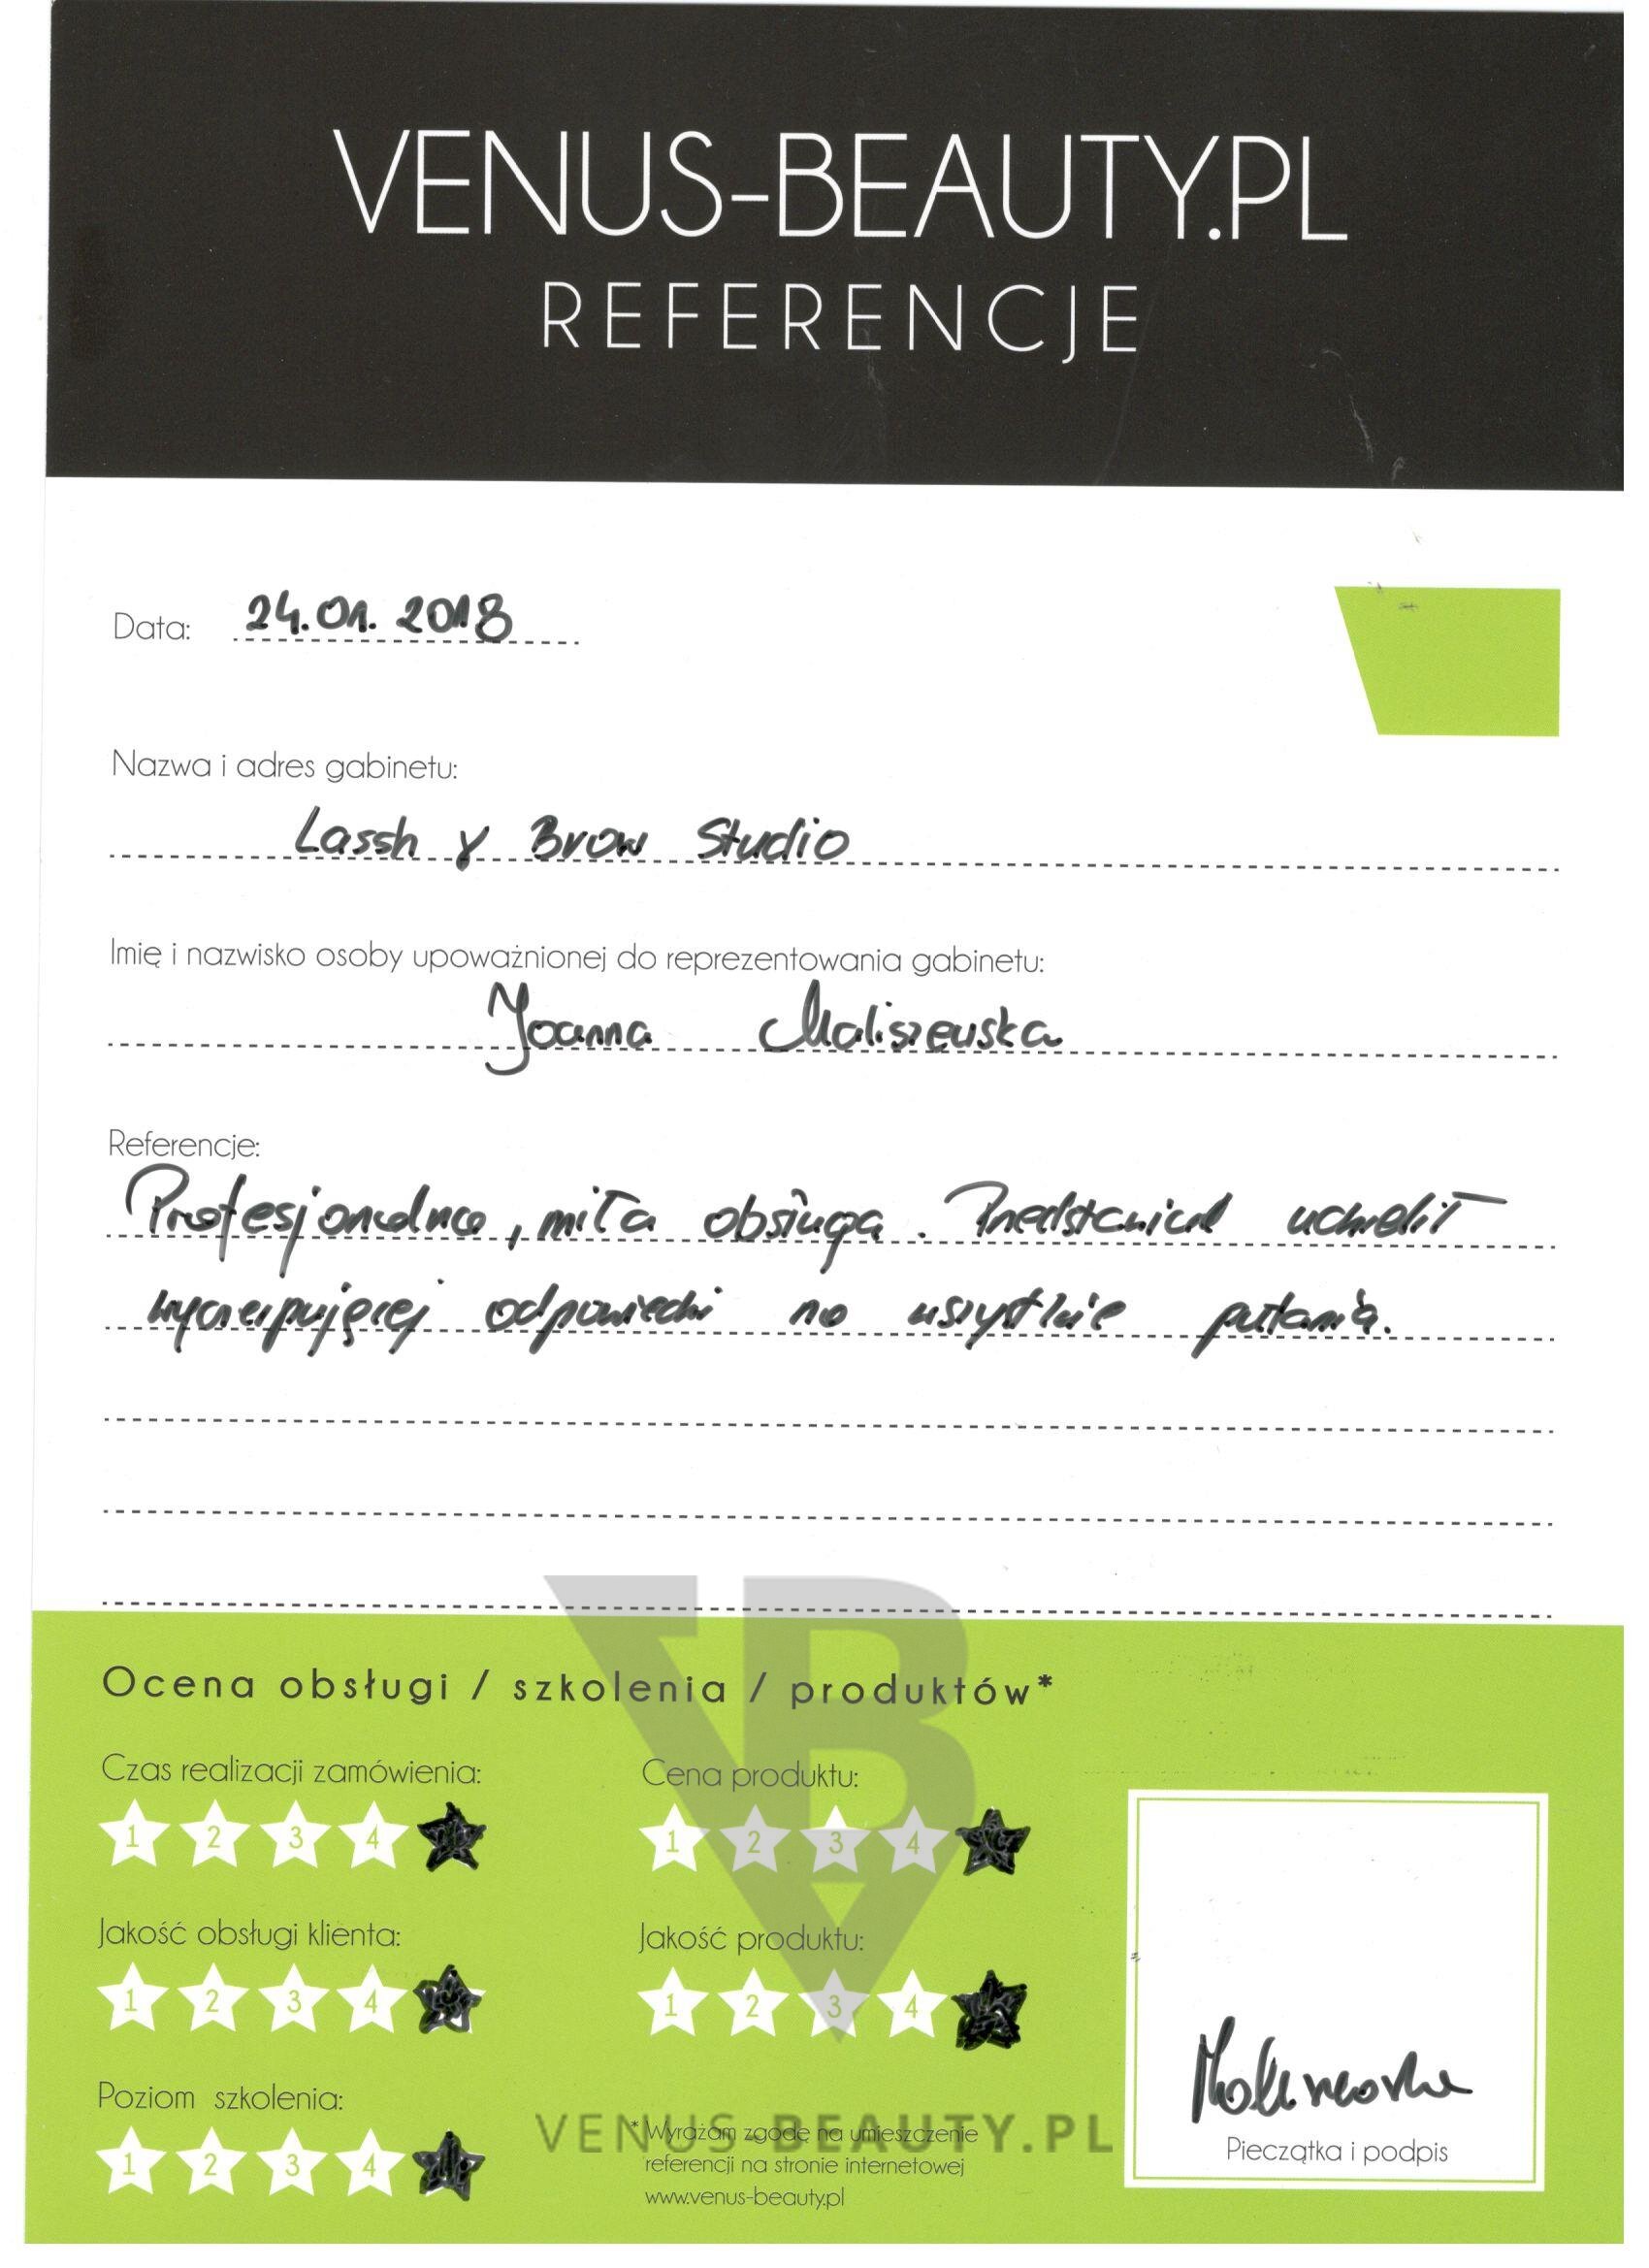 VENUS-BEAUTY.PL
REFERENCJE
Data: 24.01.2018
Nazwa i adres gabinetu:
Lassh & Brow Studio
Imię i nazwisko osoby upoważnionej do reprezentowania gabinetu:
Joanna Maliszewska
Referencje:
Profesjonalna, miła obsługa. Przedstawiciel udzielił
wyczerpującej odpowiedzi na wszystkie pytania.
Ocena obsługi / szkolenia / produktów*
Czas realizacji zamówienia:
1 2 3 4
Cena produktu:
1 2 3 4
Jakość obsługi klienta:
1 2 3 4
Jakość produktu:
1 2 3 4
Poziom szkolenia:
1 2 3 4
* Wyrażam zgodę na umieszczenie
referencji na stronie internetowej
www.venus-beauty.pl
VENUS-BEAUTY.PL
VB
Pieczątka i podpis